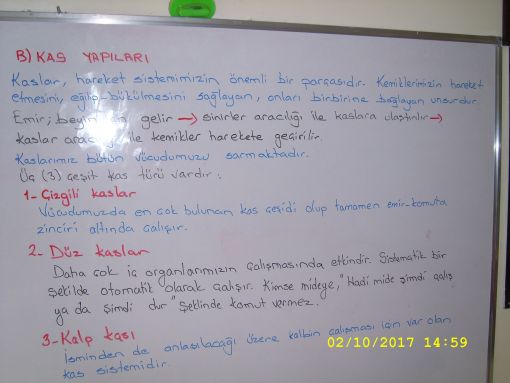 B) KAS YAPILARI
Kaslar, hareket sistemimizin önemli bir parçasıdır. Kemiklerimizin hareket
etmesini, eğilip-bükülmesini sağlayan, onları birbirine bağlayan unsurdur.
Emir; beyin gelir → sinirler aracılığı ile kaslara ulaştırılır →
kaslar ile kemikler harekete geçirilir.
Kaslarımız bütün vücudumuzu sarmaktadır.
Üç (3) çeşit kas türü vardır:
1- Çizgili kaslar
Vücudumuzda en çok bulunan kas çeşidi olup tamamen emir-komuta
zinciri altında çalışır.
2- Düz kaslar
Daha çok iç organlarımızın çalışmasında etkindir. Sistematik bir
şekilde otomatik olarak çalışır. Kimse mideye, "Hadi mide şimdi çalış
ya da şimdi dur" şeklinde komut vermez.
3- Kalp kası
İsminden de anlaşılacağı üzere kalbin çalışması için var olan
kas sistemidir.
02/10/2017 14:59